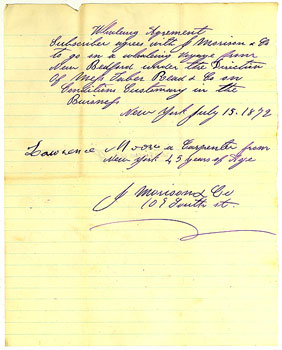 Whaling Agreement
Subscriber agrees with J Morison & Co
to go on a whaling voyage from
New Bedford under the Direction
Of Mess Taber Read & Co on
Conditions Customary in the
Business
New York July 15. 1872
Lawrence Moore a Carpenter from
New York 45 years of Age
J Morison & Co
109 South st.